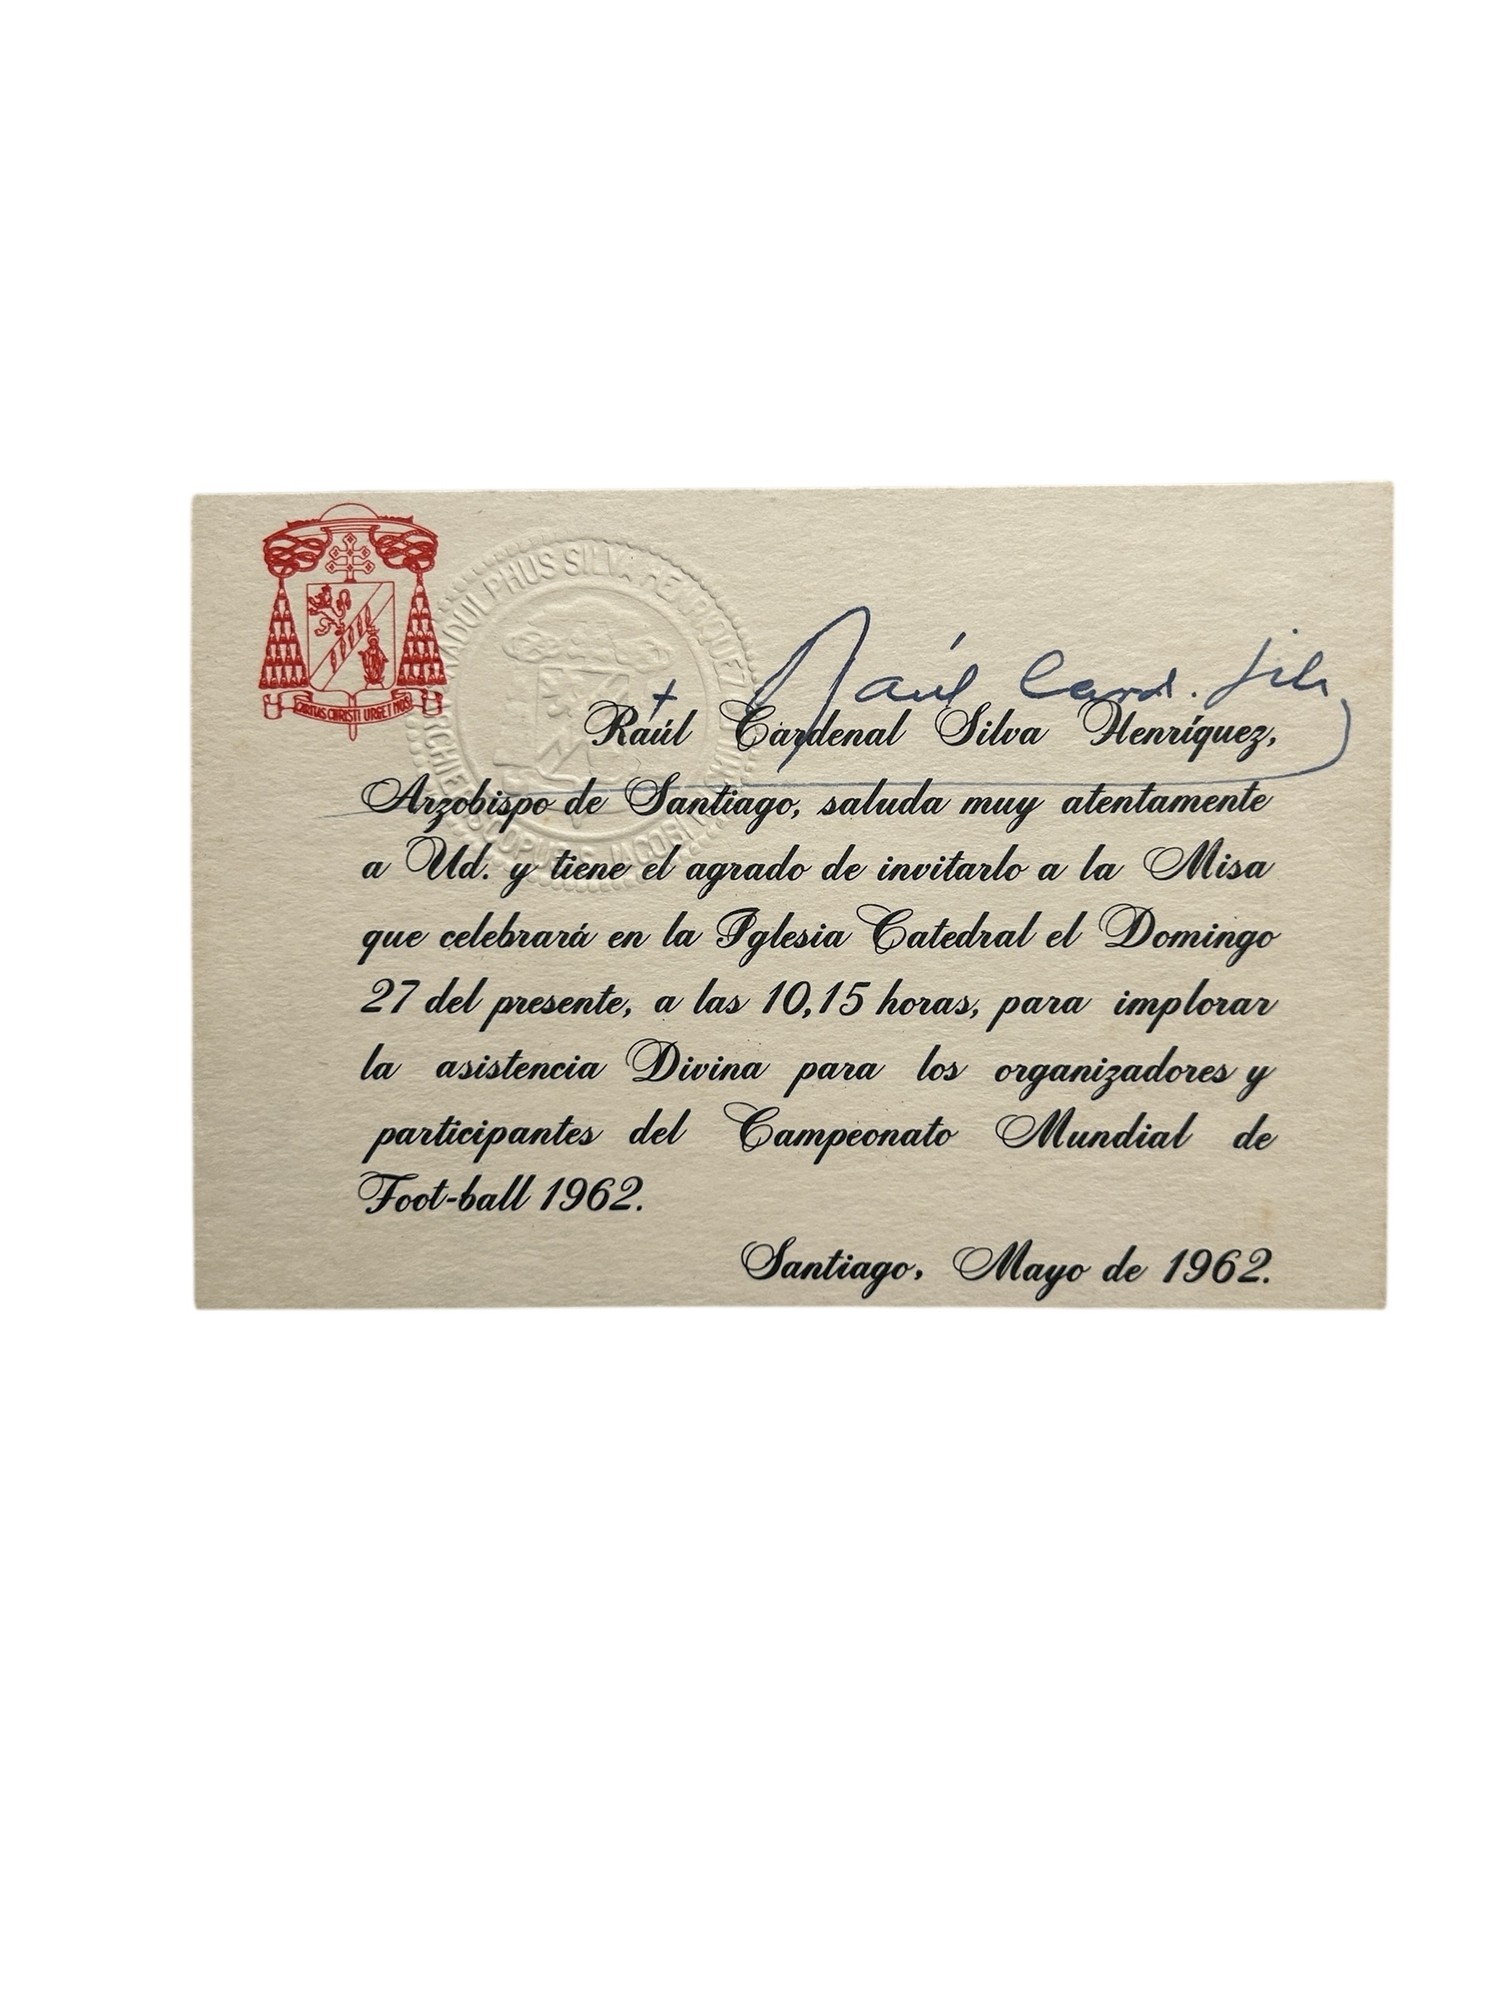 CARITAS CHRISTI URGET NOS
RADULPHUS SILVA HENRIQUEZ
+ Raúl Card. Silva
Raúl Cardenal Silva Henríquez,
Arzobispo de Santiago, saluda muy atentamente
a Ud. y tiene el agrado de invitarlo a la Misa
que celebrará en la Iglesia Catedral el Domingo
27 del presente, a las 10,15 horas, para implorar
la asistencia Divina para los organizadores y
participantes del Campeonato Mundial de
Foot-ball 1962.
Santiago, Mayo de 1962.